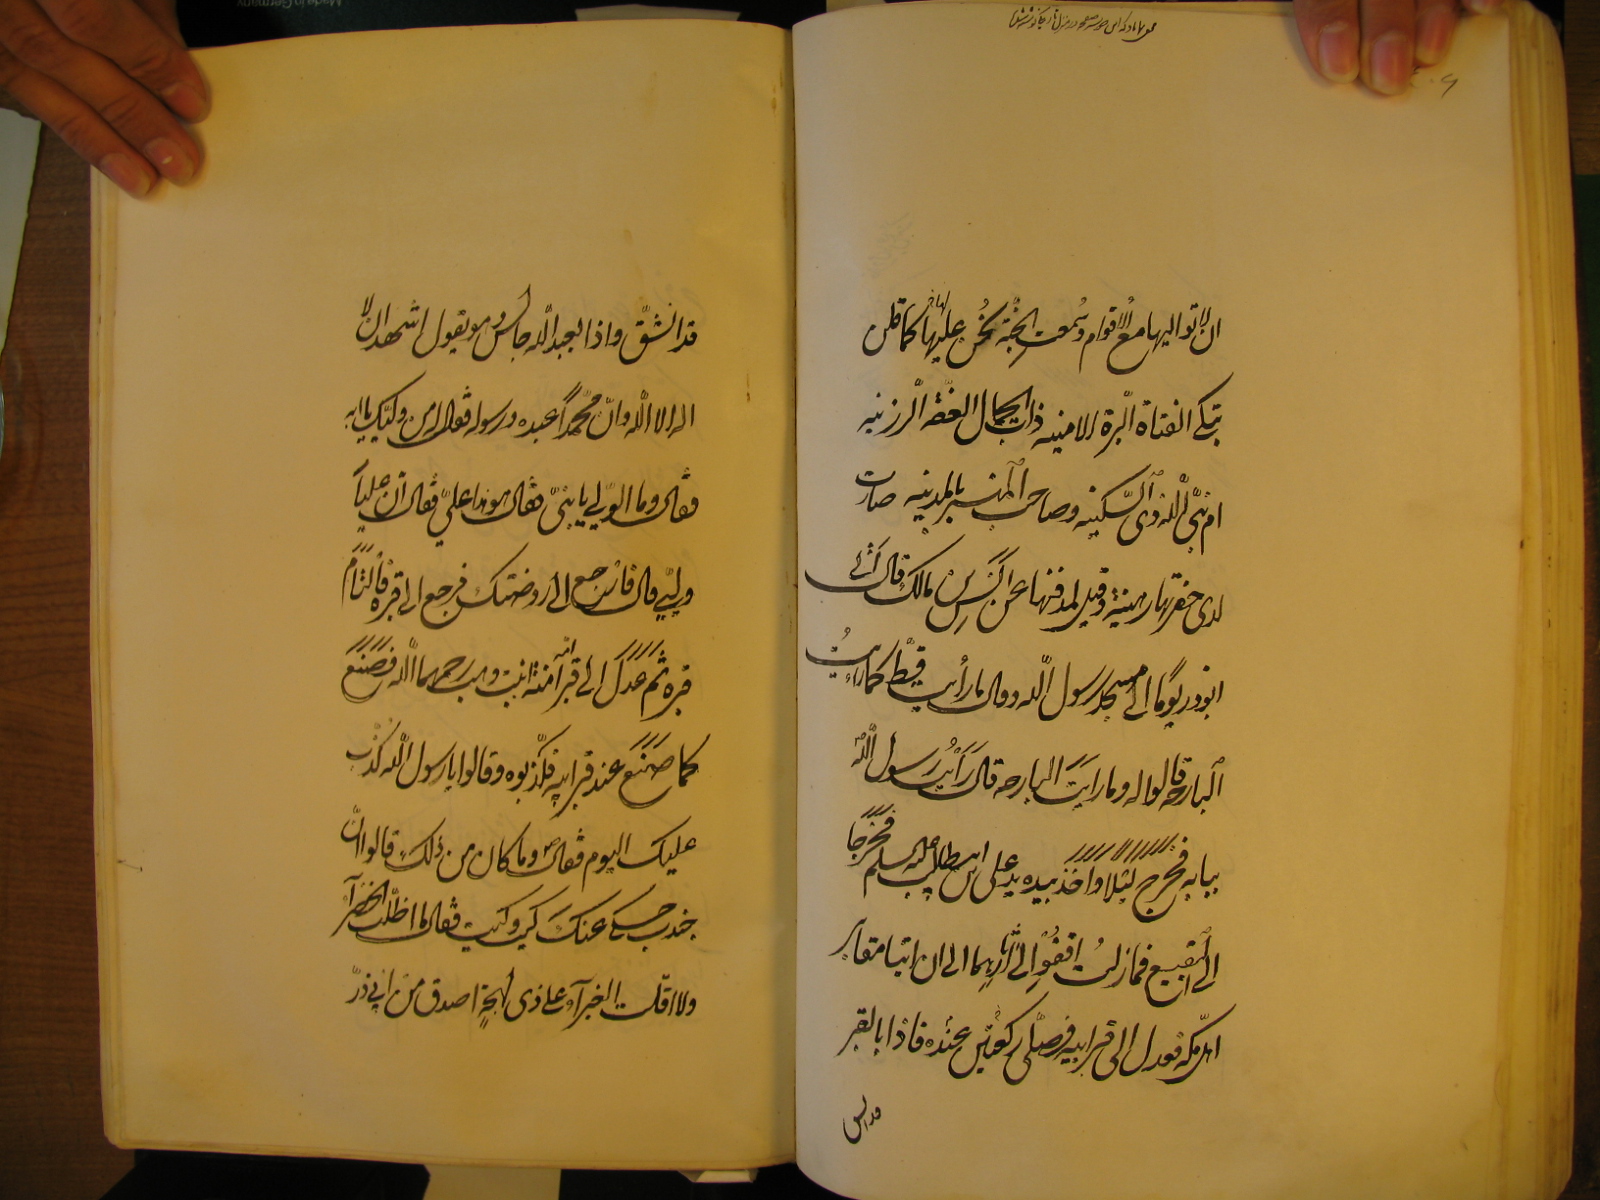 ان لا تو اليها مع الاقوام وسمعت الجنة نحن عليها كما قلن
تبكي الفتاة البرة الامينه ذات الجمال العفة الرزينه
ام نبي الله ذي السكينه وصاحب المنبر بالمدينه صارت
لدى حفرتها رهينة وقيل لمدفنها عن انس بن مالك قال اتى
ابوذر يوما الى مسجد رسول الله وقال ما رأيت قط كما رأيت
البارحة قالوا له وما رايت البارحه قال رَأَيْتُ رسول الله
ببابه فخرج ليلا واخذ بيده يد علي بن ابيطالب عليه السلم فخرجا
الى البقيع فما زلت اقفو الى آثارهما الى ان اتيا مقابر
اهل مكه فعدل الى قبر ابيه فصلى ركعتين عنده فاذا بالقبر
قد انشق
قد انشقّ واذا بعبد الله جالس وهو يقول اشهد ان لا
اله الا الله وانّ محمّداً عبده ورسوله فقال له من وليّك يا ابه
فقال وما الولي يا بنيّ فقال هو هذا عليّ فقال انّ علياً
وليّي قال فارجع الى روضتك فرجع الى قبره فالتام
قبره ثم عدل الى قبر امه آمنة بنت وهب رحمهما الله فصنع
كما صنع عند قبر ابيه فكذّبوه وقالوا يا رسول الله كُذب
عليك اليوم فقال وما كان من ذلك قالوا انّ
جندب حكى عنك كيت وكيت فقال ما اظلّت الخضرآء
ولا اقلّت الغبرآء على ذي لهجةٍ اصدق من ابي ذرّ